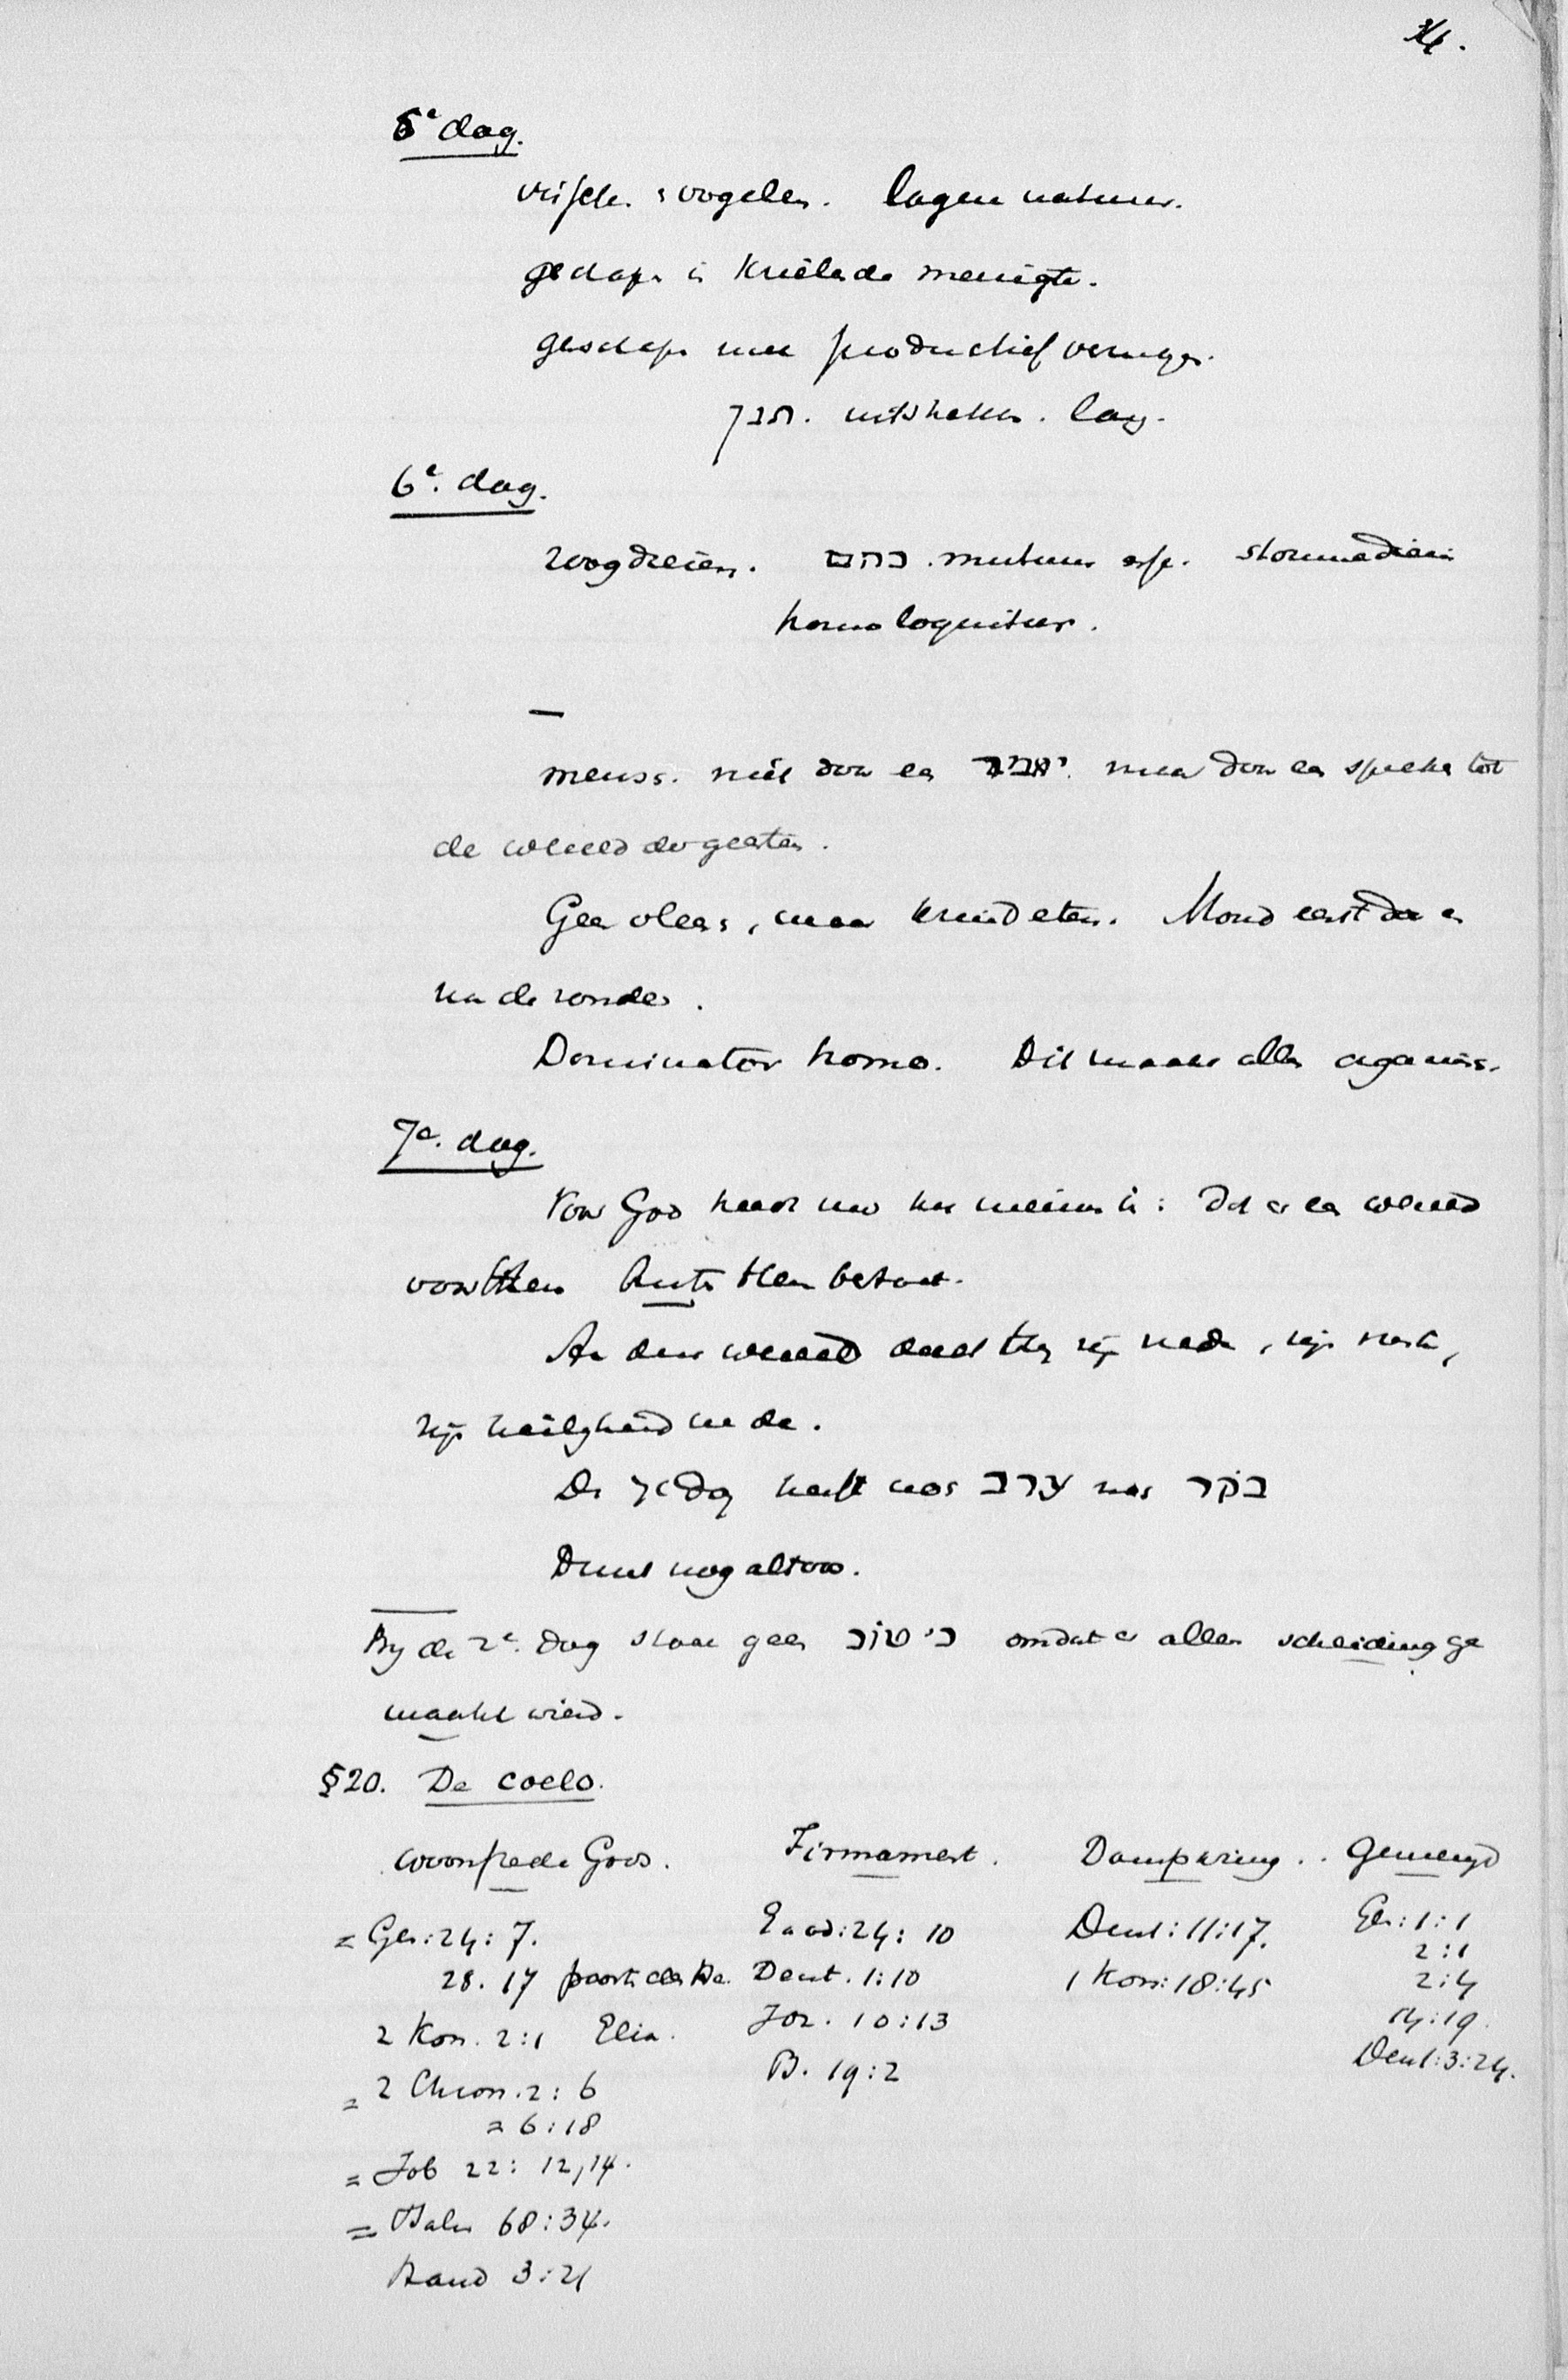 5e dag.
visch. & vogelen. lagen natuur.
geschap. in krielende menigte.
geschap. met productief vermogen.
תנן. uitstrekken. lang.
6e. dag.
zoogdieren. בהם. mutum esse. stomme dieren
homo loquitur.
—
mensch. niet door een יאמר. maar door een spreken tot
de wereld der geesten.
Geen vleesch, maar kruid eten. Mond eerst dan en
na de zonde.
Dominator homo. Dit maakt alles organisch.
7e. dag.
Voor God heeft nu het menschen is: dat er een wereld
voor Hem buiten Hem bestaat.
Aan deze wereld deelt Hij zijn vrede, zijn rust,
zijn heiligheid mede.
De 7e dag heeft noch ערב noch בקר
Duurt nog altoos.
Bij de 2e. dag staat geen כי טוב omdat er alleen scheiding ge
maakt wierd.
§20. De coelo.
woonstede Gods. Firmament. Dampkring. Gemengd
= Gen: 24: 7. Exod: 24: 10 Deut: 11:17. Gen: 1:1
2:1
28. 17 poort des He. Deut. 1:10 1 Kon: 18:45 2:4
2 Kon. 2:1 Elia. Joz. 10:13 14:19.
= 2 Chron. 2: 6 Ps. 19:2 Deut: 3:24.
= 6:18
= Job 22: 12,14.
= Psalm 68:34.
Hand 3:21